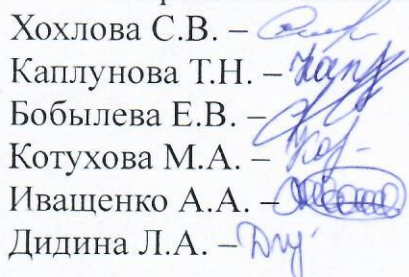 Хохлова С.В. –
Каплунова Т.Н. –
Бобылева Е.В. –
Котухова М.А. –
Иващенко А.А. –
Дидина Л.А. –